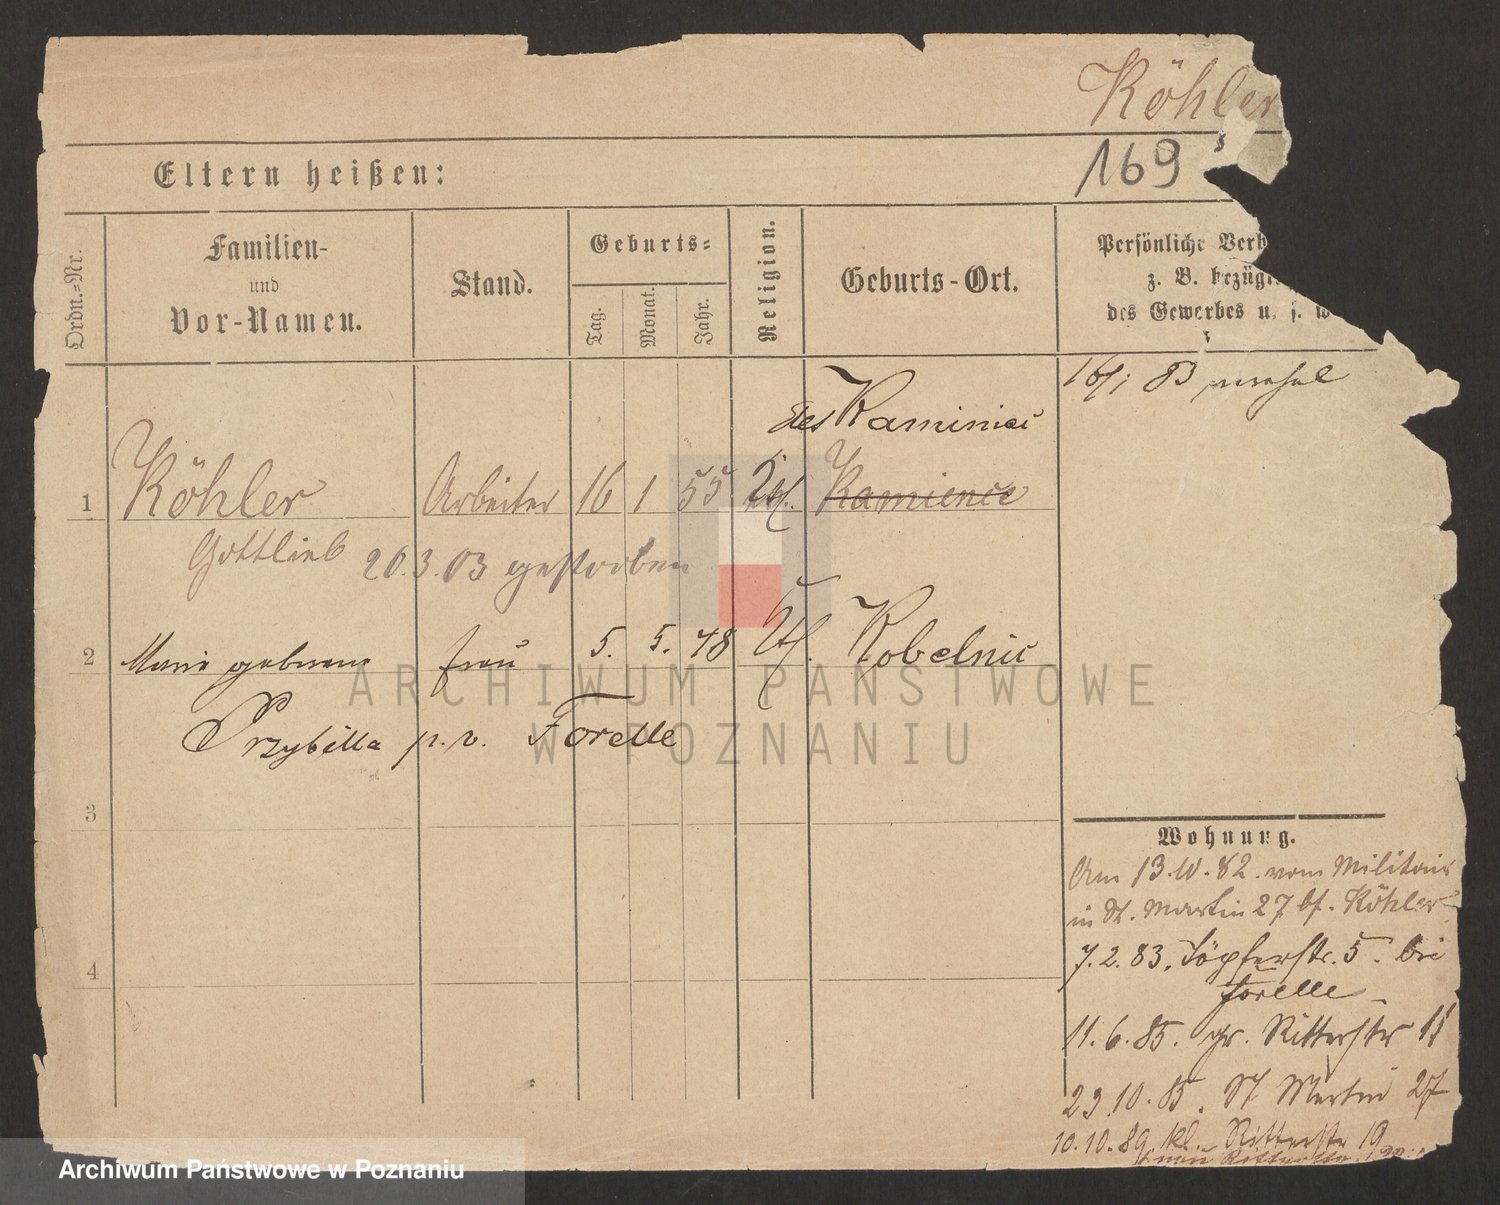 Köhler
169
Eltern heißen:
Ordn.-Nr.
Familien-
und
Vor-Namen.
Stand.
Geburts-
Tag.
Monat.
Jahr.
Religion.
Geburts-Ort.
Persönliche Verh
z. B. bezügl
des Gewerbes u. s. w
1
Köhler
Arbeiter
16
1
55
Kth.
Kaminiec
Kamienice
Gottlieb
20.3.03 gestorben
2
Marie geborene
Frau
5.
5.
48
Kth.
Kobelnic
Przybilla p.v. Forelle
3
4
Wohnung.
Am 13.10.82. vom Militair
in St. Martin 27 bf. Köhler
7.2.83. Töpferstr. 5. bei
Forelle
11.6.85. gr. Ritterstr 11
23.10.85. St Martin 27
10.10.89. kl. Ritterstr 19
ARCHIWUM PAŃSTWOWE
W POZNANIU
Archiwum Państwowe w Poznaniu